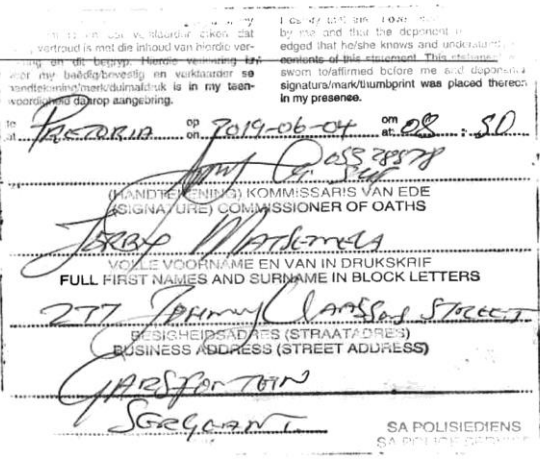 verklaarder erken dat
vertroud is met die inhoud van hierdie ver-
en dit begryp. Hierdie verklaring is
voor my beëdig/bevestig en verklaarder se
handtekening/merk/duimafdruk is in my teen-
woordigheid daarop aangebring.
by me and that the deponent
edged that he/she knows and understands
contents of this statement. This statement
sworn to/affirmed before me and deponent's
signature/mark/thumbprint was placed thereon
in my presence.
te at PRETORIA op on 2019-06-04 om at 08:50
(HANDTEKENING) KOMMISSARIS VAN EDE
(SIGNATURE) COMMISSIONER OF OATHS
JERRY MATSEMELA
VOLLE VOORNAME EN VAN IN DRUKSKRIF
FULL FIRST NAMES AND SURNAME IN BLOCK LETTERS
277 STREET
BESIGHEIDSADRES (STRAATADRES)
BUSINESS ADDRESS (STREET ADDRESS)
GARSFONTEIN
SERGEANT
SA POLISIEDIENS
SA POLICE SERVICE